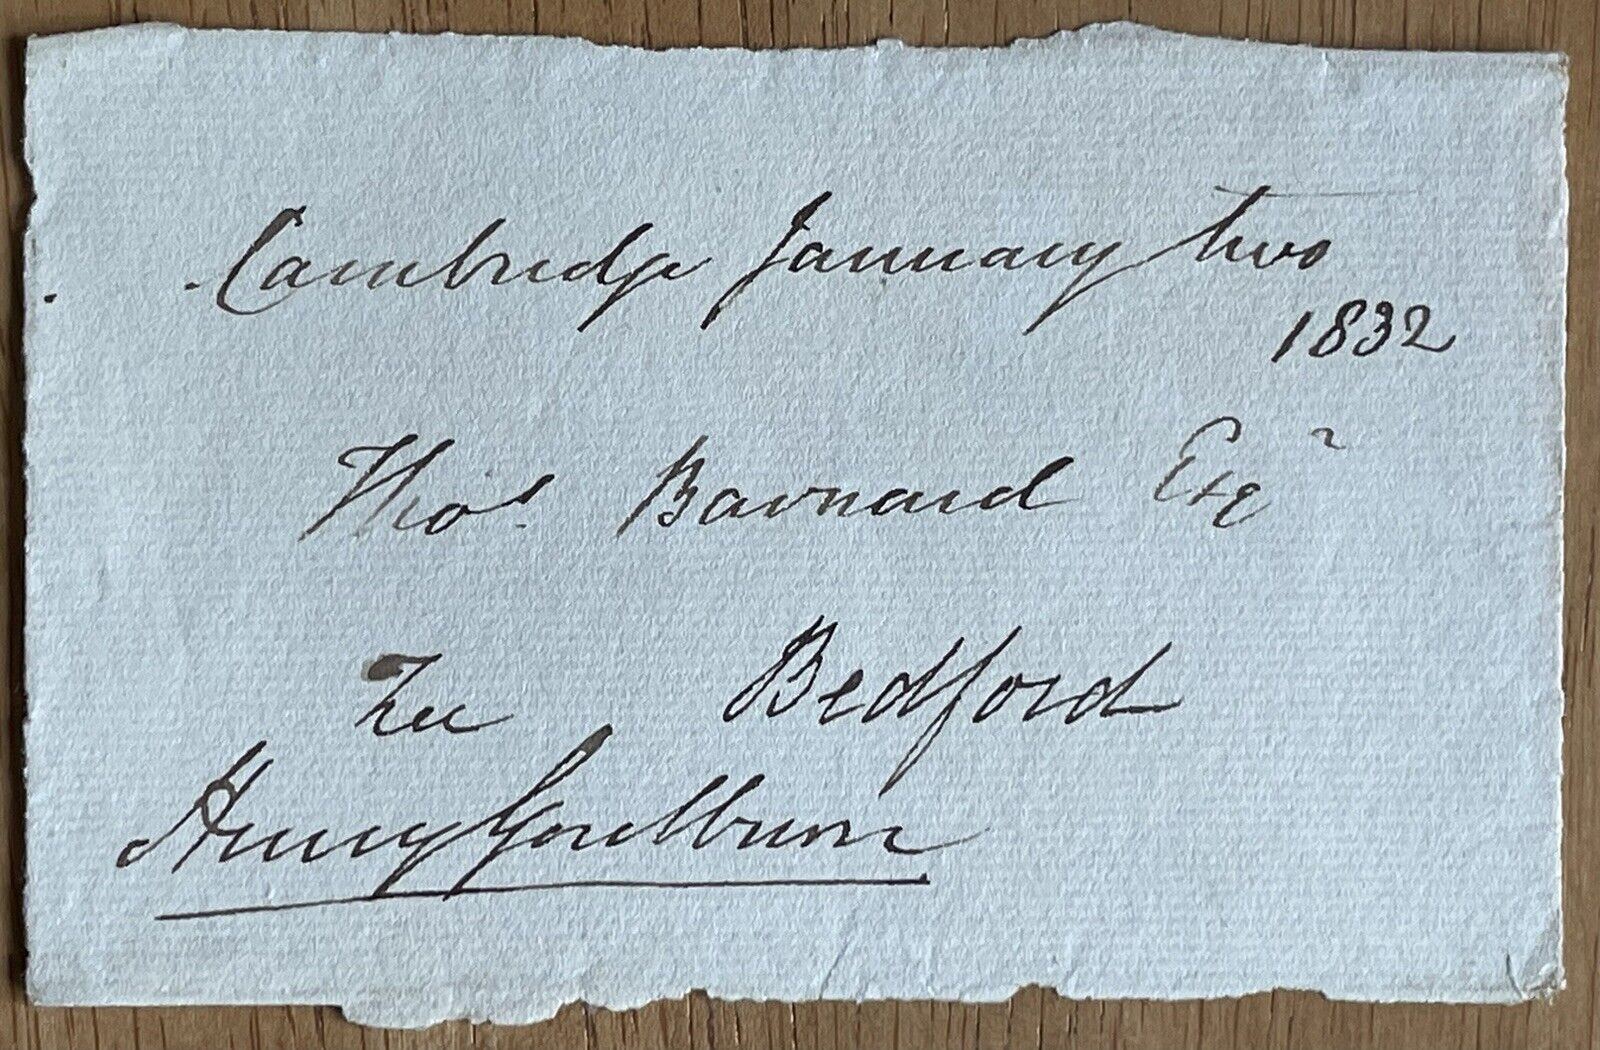 Cambridge January two
1832
Thos. Barnard Esqr
Bedford
Henry Goulburn